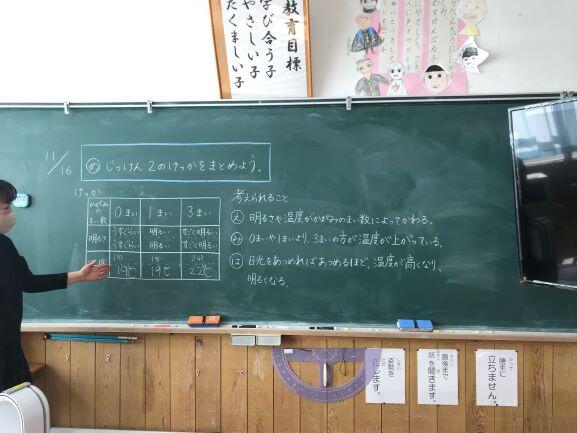 教育目標
学び合う子
やさしい子
たくましい子
11/16
め じっけん2のけっかをまとめよう。
けっか
かがみのまい数 0まい 1まい 3まい
明るさ うすぐらい 明るい すごく明るい
うすぐらい 明るい すごく明るい
19℃ 19℃ 22℃
考えられること
え 明るさや温度がかがみのまい数によってかわる。
み 0まいや1まいより、3まいの方が温度が上がっている。
は 日光をあつめればあつめるほど、温度が高くなり、
明るくなる。
姿勢を
正します。
最後まで
話を聞きます。
勝手に
立ちません。